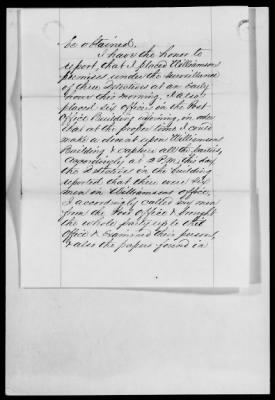 be obtained.
I have the honor to
report, that I placed Williamson's
premises, under the surveillance
of three Detectives at an early
hour this morning. I also
placed six Officers in the Post
Office Building adjoining, in order
that at the proper time I could
make a descent upon Williamsons
Building & capture all the parties,
Accordingly at 2 P.m. this day,
the detectives in the building
reported that there were six
men in Williamsons office.
I accordingly called my men
from the Post Office & brought
the whole party up to this
Office & examined their persons,
& also the papers found in